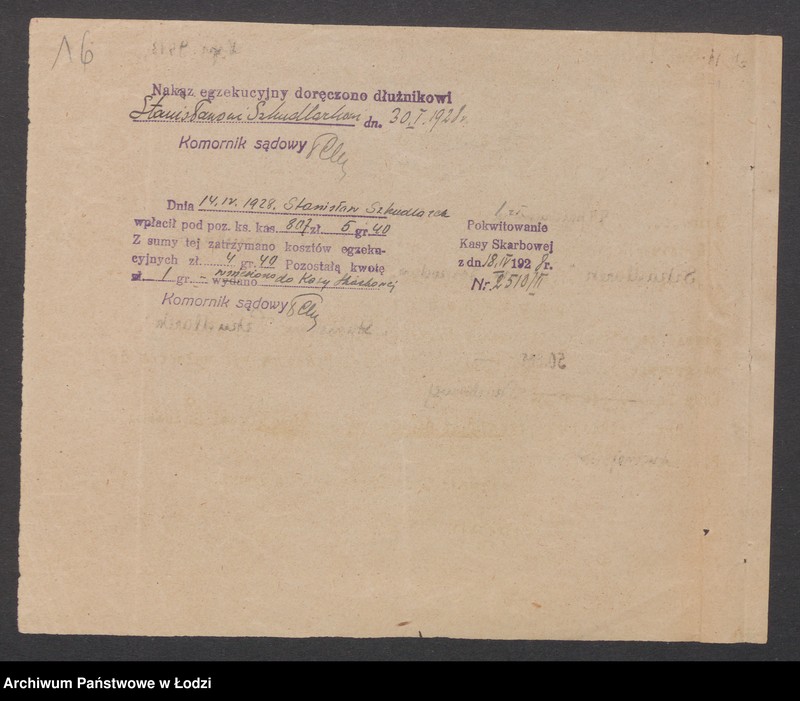 16
Nakaz egzekucyjny doręczono dłużnikowi
Stanisławowi Szkudlarkowi dn. 30.I.1928r.
Komornik sądowy
Dnia 14.IV.1928. Stanisław Szkudlarek
wpłacił pod poz. ks. kas. 807 zł. 5 gr. 40
Z sumy tej zatrzymano kosztów egzeku-
cyjnych zł. 4 gr. 40 Pozostałą kwotę
zł. 1 gr. – wniesiono do Kasy Skarbowej
wydano
Komornik sądowy
1 zł.
Pokwitowanie
Kasy Skarbowej
z dn. 18.IV 1928r.
Nr. 2510/II
Archiwum Państwowe w Łodzi